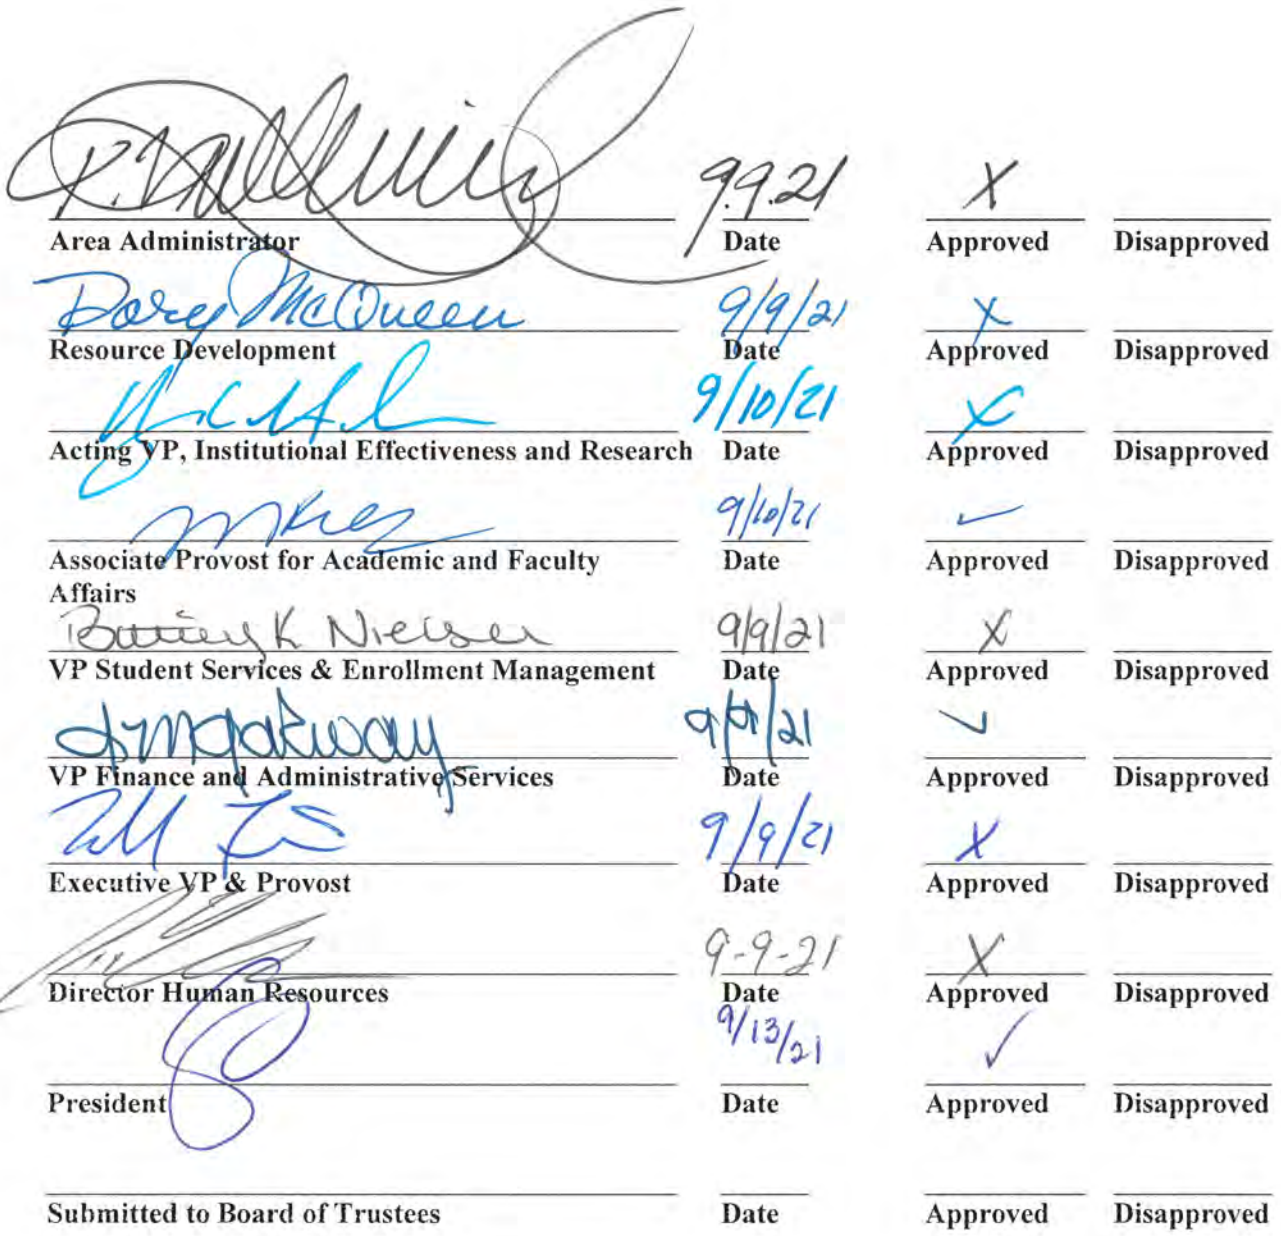 9.9.21 X
Area Administrator Date Approved Disapproved
Dorey McQueen 9/9/21 X
Resource Development Date Approved Disapproved
9/10/21 X
Acting VP, Institutional Effectiveness and Research Date Approved Disapproved
9/10/21 ✓
Associate Provost for Academic and Faculty Date Approved Disapproved
Affairs
K Nielsen 9/9/21 X
VP Student Services & Enrollment Management Date Approved Disapproved
9/9/21 ✓
VP Finance and Administrative Services Date Approved Disapproved
9/9/21 X
Executive VP & Provost Date Approved Disapproved
9-9-21 X
Director Human Resources Date Approved Disapproved
9/13/21 ✓
President Date Approved Disapproved
Submitted to Board of Trustees Date Approved Disapproved